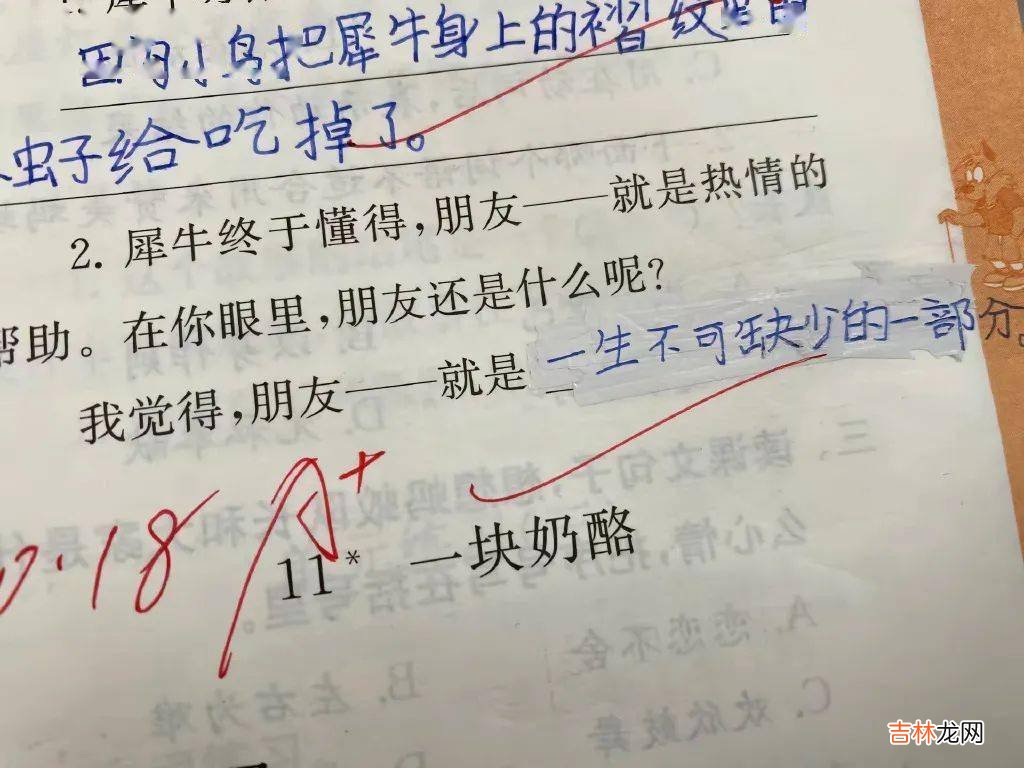 小鸟把犀牛身上的褶纹里的
虫子给吃掉了。
2. 犀牛终于懂得,朋友——就是热情的
帮助。在你眼里,朋友还是什么呢?
我觉得,朋友——就是一生不可缺少的一部分。
18 A+
11* 一块奶酪
吉林龙网